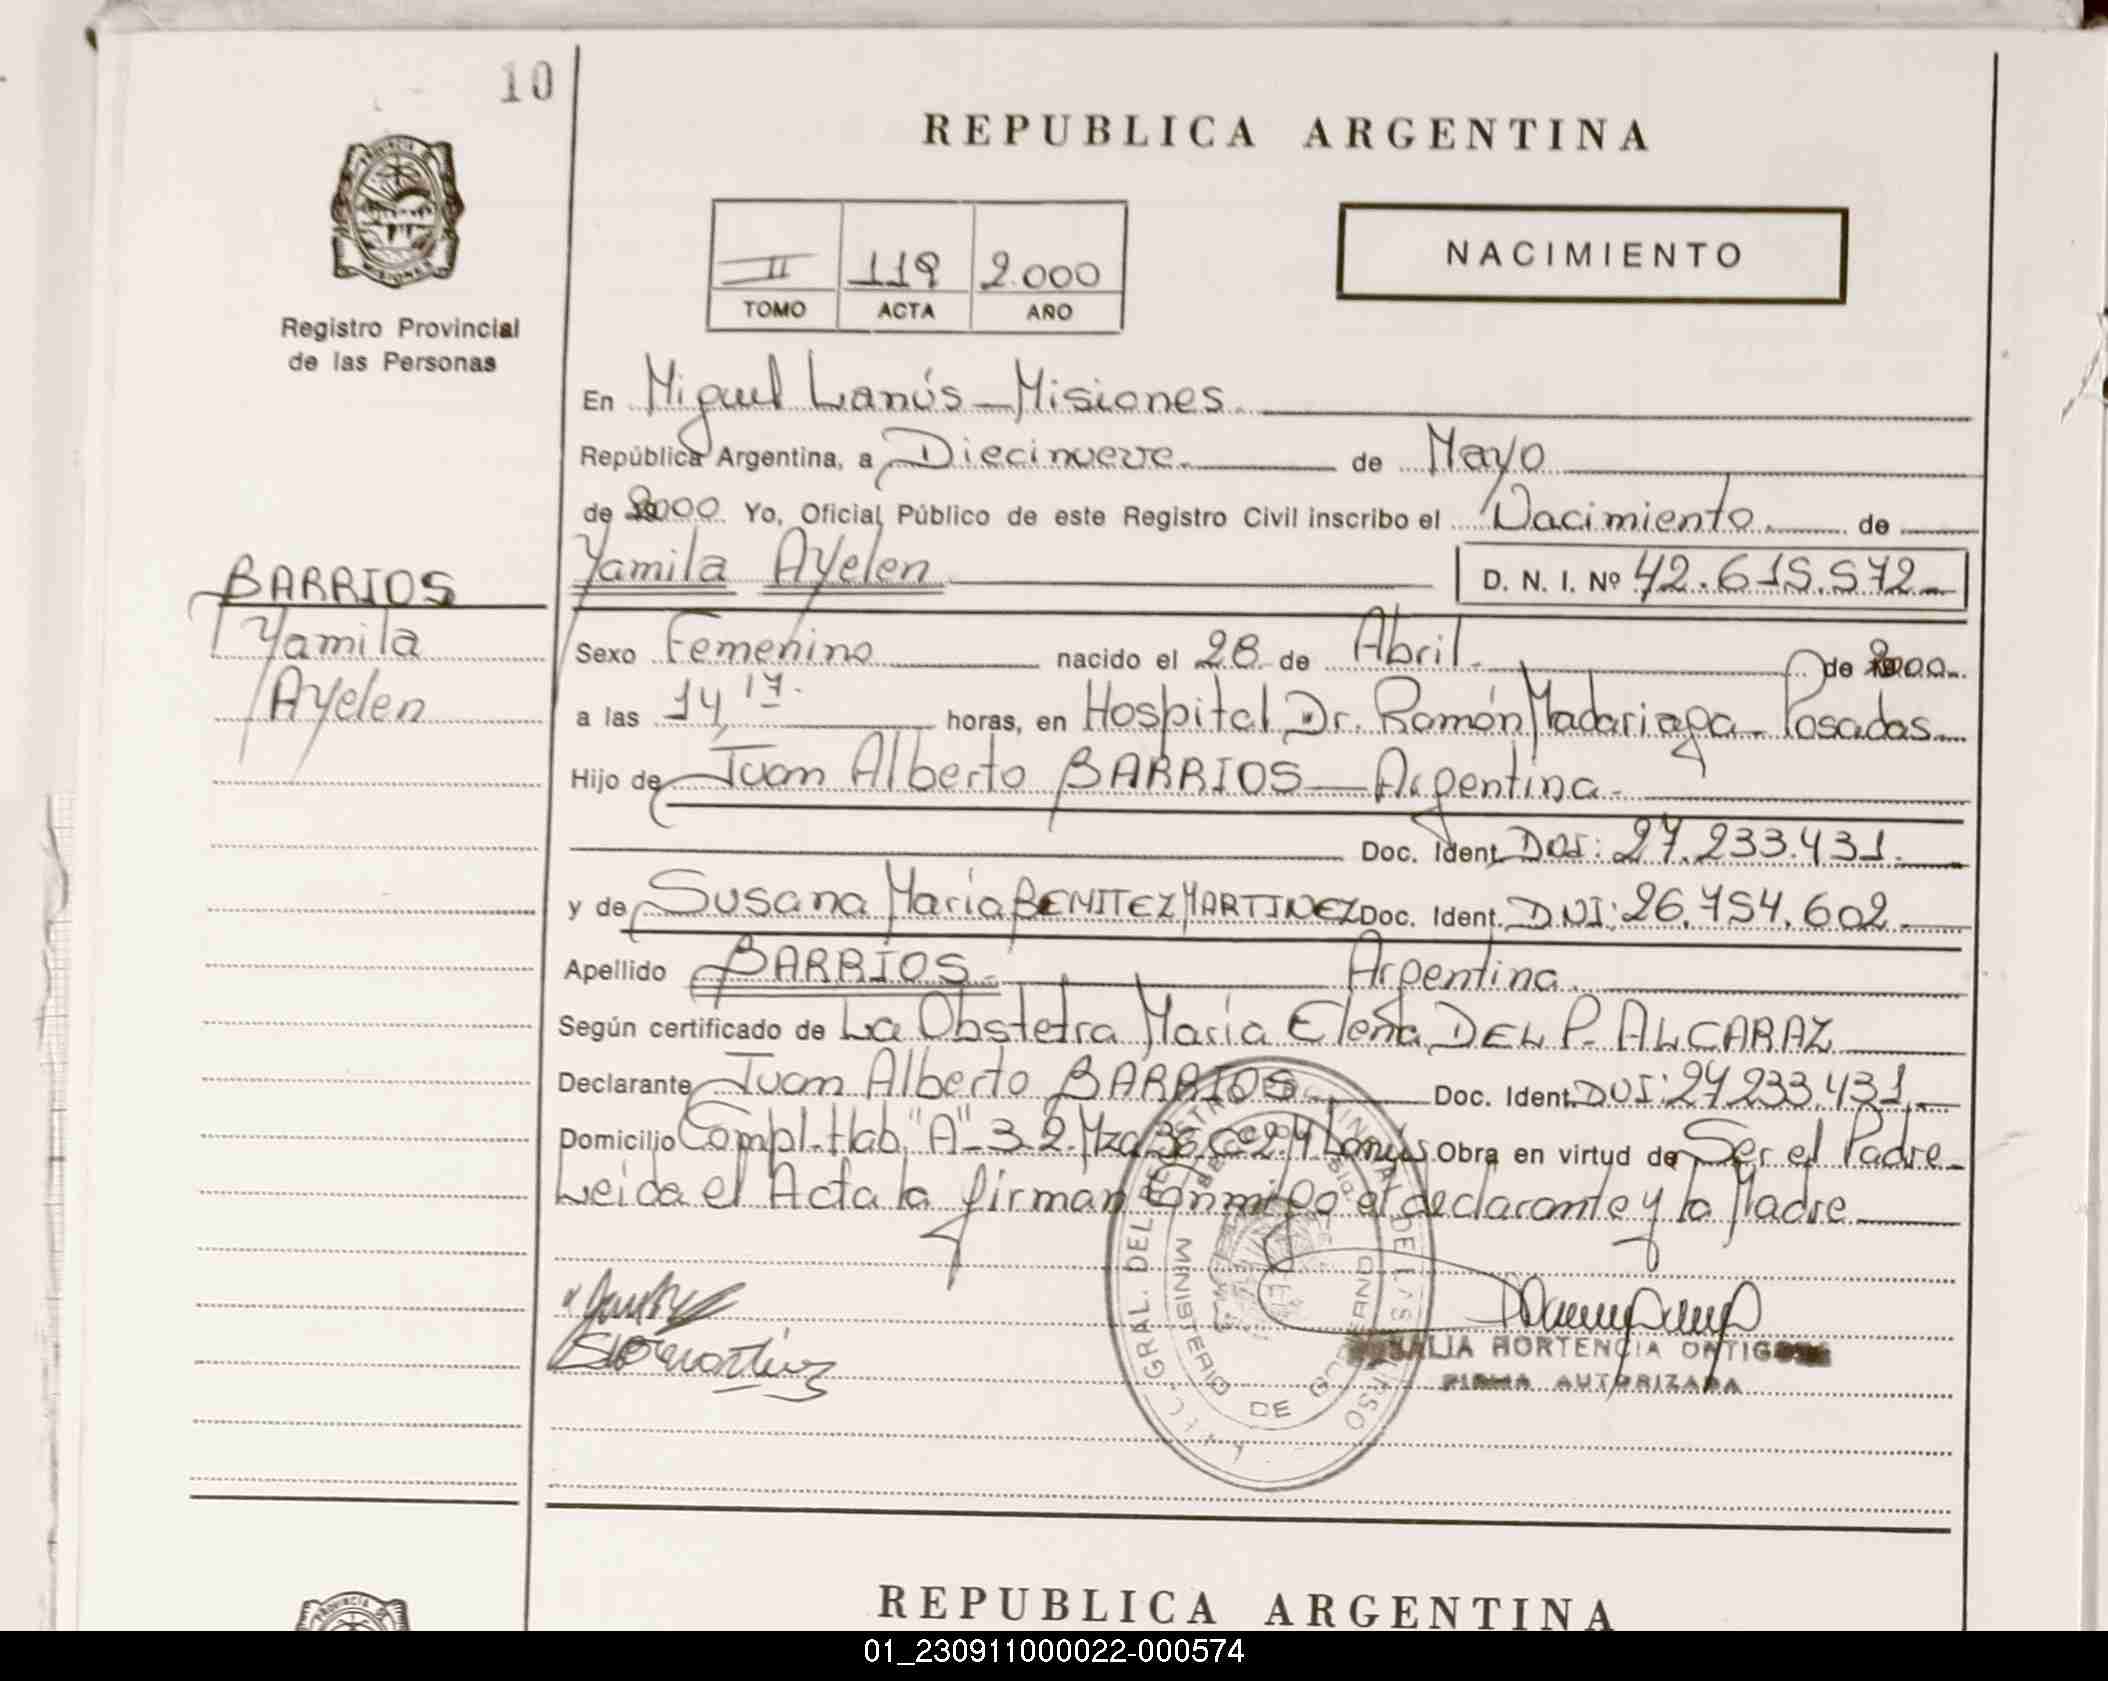 10
REPUBLICA ARGENTINA
PROVINCIA DE
MISIONES
Registro Provincial
de las Personas
II 119 2.000
TOMO ACTA AÑO
NACIMIENTO
En Miguel Lanús - Misiones.
República Argentina, a Diecinueve. de Mayo
de 2000 Yo, Oficial Público de este Registro Civil inscribo el Nacimiento de
Yamila Ayelen D. N. I. Nº 42.615.572
BARRIOS
Yamila
Ayelen
Sexo Femenino nacido el 28 de Abril. de 2000.
a las 14,17. horas, en Hospital Dr. Ramón Madariaga - Posadas
Hijo de Juan Alberto BARRIOS - Argentina.
Doc. Ident. DNI: 27.233.431.
y de Susana María BENITEZ MARTINEZ Doc. Ident. DNI: 26.754.602.
Apellido BARRIOS. Argentina.
Según certificado de La Obstetra María Elena DEL P. ALCARAZ
Declarante Juan Alberto BARRIOS Doc. Ident. DNI: 27.233.431.
Domicilio Compl. Hab. "A" - 3.2. Mza 36 M Lanús Obra en virtud de Ser el Padre
Leida el Acta la firman conmigo el declarante y la Madre
MINISTERIO DE GOBIERNO
HORTENCIA
FIRMA AUTORIZADA
REPUBLICA ARGENTINA
PROVINCIA DE
01_230911000022-000574